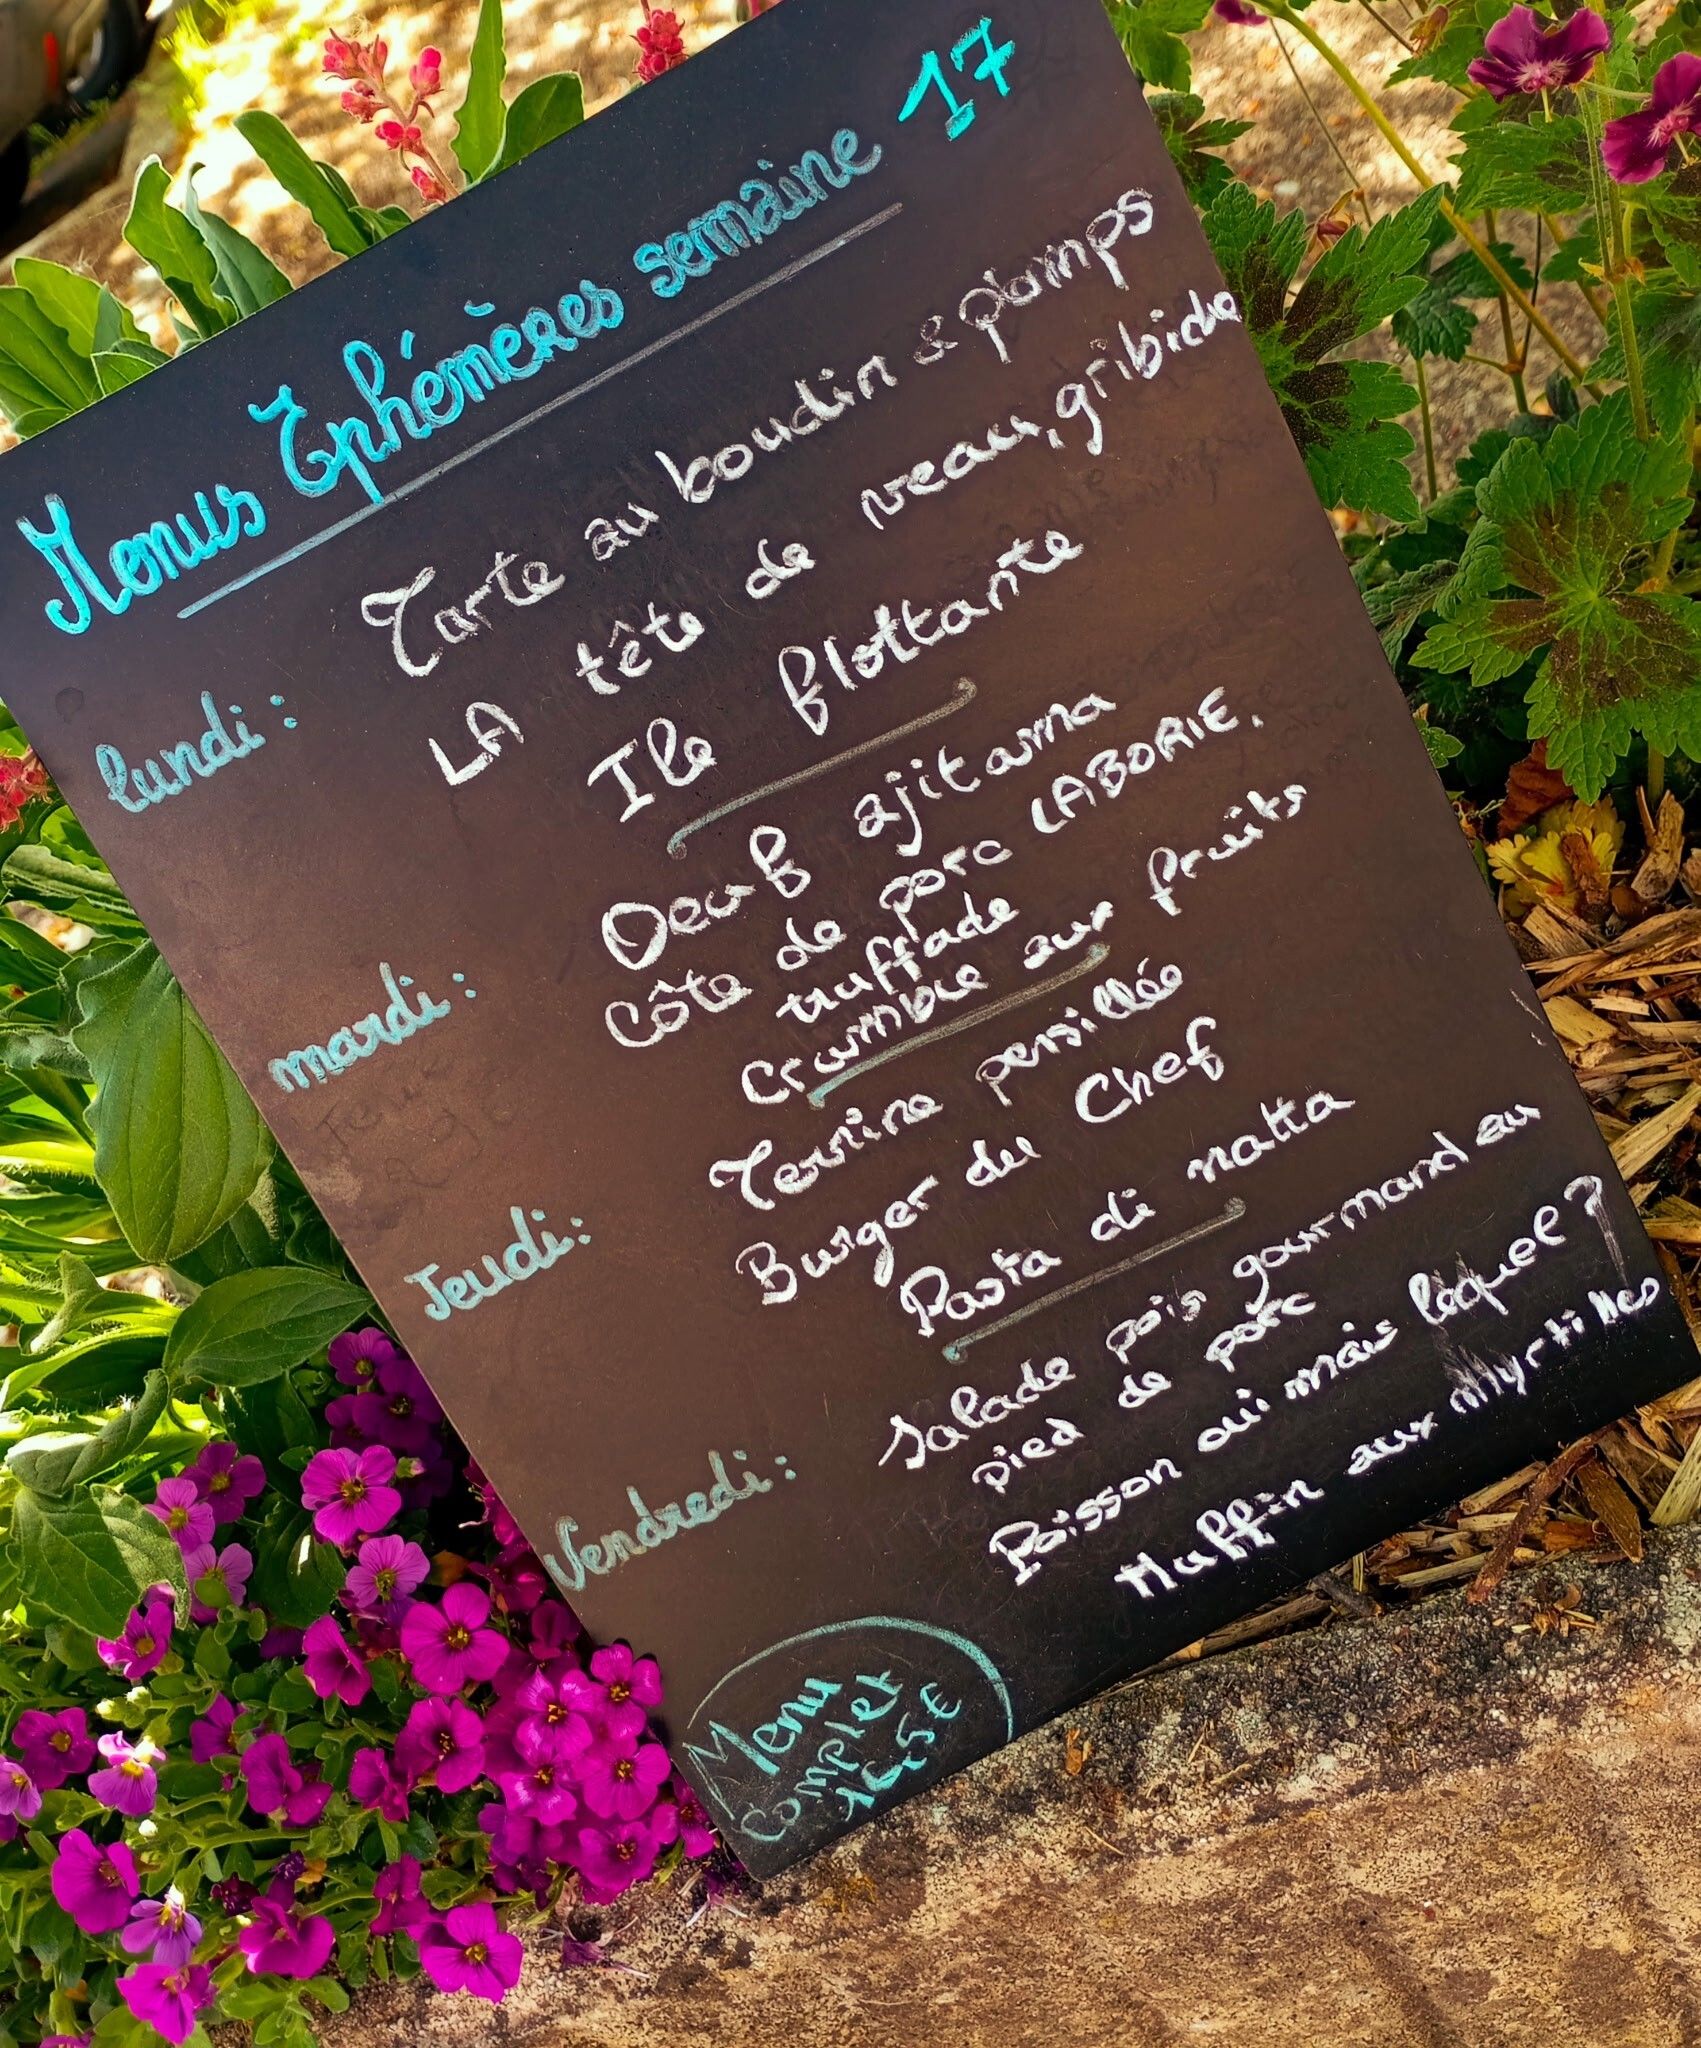 Menus Ephémères semaine 17
lundi :
Tarte au boudin & pomps
LA tête de veau, gribiche
Ile flottante
mardi :
Oeuf ajitama
Côte de porc LABORIE.
truffade
Crumble aux fruits
Jeudi :
Terrine persillée
Burger du Chef
Pasta di natta
Vendredi :
Salade pois gourmand au
pied de porc
Poisson oui mais lequel ?
Muffin aux myrtilles
Menu
complet